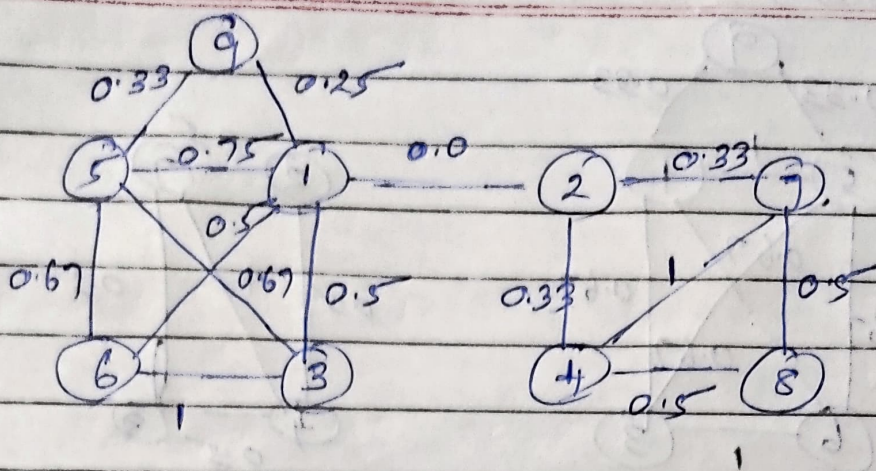 9
0.33 0.25
5 0.75 1 0.0 2 0.33 7
0.5
0.67 0.67 0.5 0.33 1 0.5
6 3 4 8
1 0.5
1